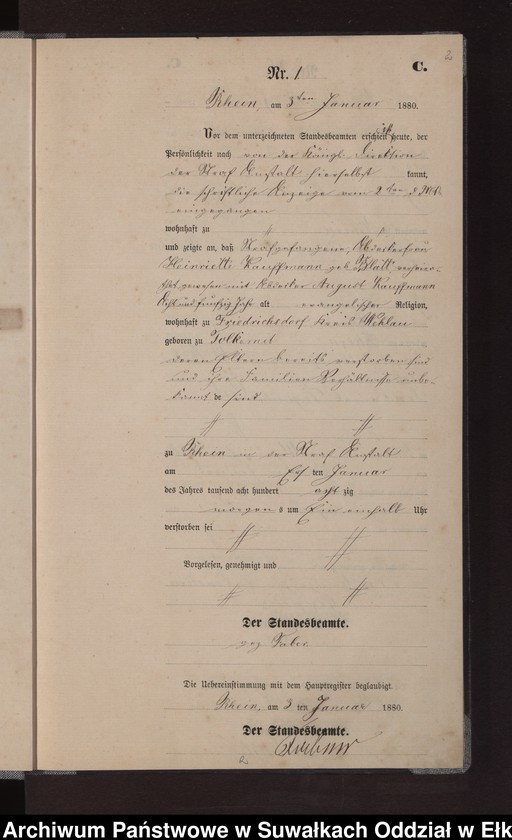 2
C.
Nr. 1
Rhein, am 3ten Januar 1880.
Vor dem unterzeichneten Standesbeamten erschien heute, der
Persönlichkeit nach von der Königl. Direktion
der Straf Anstalt hierselbst kannt,
die schriftliche Anzeige vom 2ten d. Mts.
eingegangen
wohnhaft zu
und zeigte an, daß Strafgefangene,
Heinriette Kauffmann geb. Blatt,
gewesen mit August Kauffmann
Acht und fünfzig Jahr alt evangelischer Religion,
wohnhaft zu Friedrichsdorf Kreis Wehlau
geboren zu Tolkemit
deren Eltern bereits verstorben sind
und ihre Familien Verhältnisse unbe-
kannt de sind
zu Rhein in der Straf Anstalt
am Ersten Januar
des Jahres tausend acht hundert acht zig
morgens um Ein einhalb Uhr
verstorben sei
Vorgelesen, genehmigt und
Der Standesbeamte.
gez
Die Uebereinstimmung mit dem Hauptregister beglaubigt.
Rhein, am 3 ten Januar 1880.
Der Standesbeamte.
2
Archiwum Państwowe w Suwałkach Oddział w Ełk